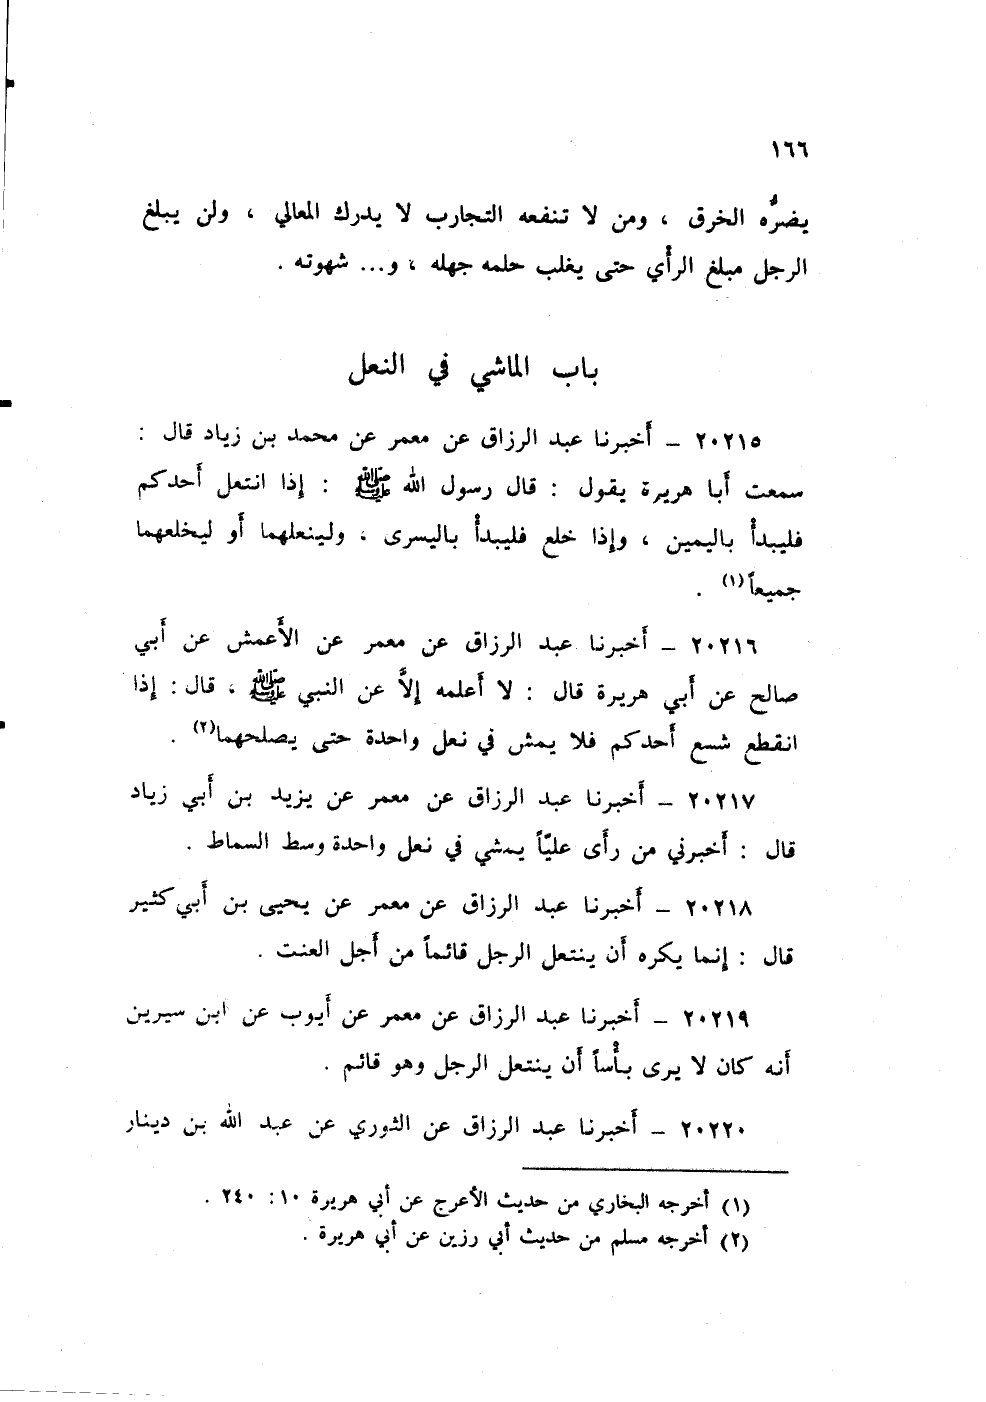 ١٦٦
يضرُّه الخرق ، ومن لا تنفعه التجارب لا يدرك المعالي ، ولن يبلغ
الرجل مبلغ الرأْي حتى يغلب حلمه جهله ، و... شهوته .
باب الماشي في النعل
٢٠٢١٥ – أَخبرنا عبد الرزاق عن معمر عن محمد بن زياد قال :
سمعت أَبا هريرة يقول : قال رسول الله ﷺ : إِذا انتعل أَحدكم
فليبدأْ باليمين ، وإِذا خلع فليبدأْ باليسرى ، ولينعلهما أَو ليخلعهما
جميعاً(١) .
٢٠٢١٦ – أَخبرنا عبد الرزاق عن معمر عن الأَعمش عن أَبي
صالح عن أَبي هريرة قال : لا أَعلمه إِلاَّ عن النبي ﷺ ، قال : إِذا
انقطع شسع أَحدكم فلا يمش في نعل واحدة حتى يصلحهما(٢) .
٢٠٢١٧ – أَخبرنا عبد الرزاق عن معمر عن يزيد بن أَبي زياد
قال : أَخبرني من رأَى عليّاً يمشي في نعل واحدة وسط السماط .
٢٠٢١٨ – أَخبرنا عبد الرزاق عن معمر عن يحيى بن أَبي كثير
قال : إِنما يكره أَن ينتعل الرجل قائماً من أَجل العنت .
٢٠٢١٩ – أَخبرنا عبد الرزاق عن معمر عن أَيوب عن ابن سيرين
أَنه كان لا يرى بأْساً أَن ينتعل الرجل وهو قائم .
٢٠٢٢٠ – أَخبرنا عبد الرزاق عن الثوري عن عبد الله بن دينار
(١) أخرجه البخاري من حديث الأعرج عن أبي هريرة ١٠ : ٢٤٠ .
(٢) أخرجه مسلم من حديث أبي رزين عن أبي هريرة .